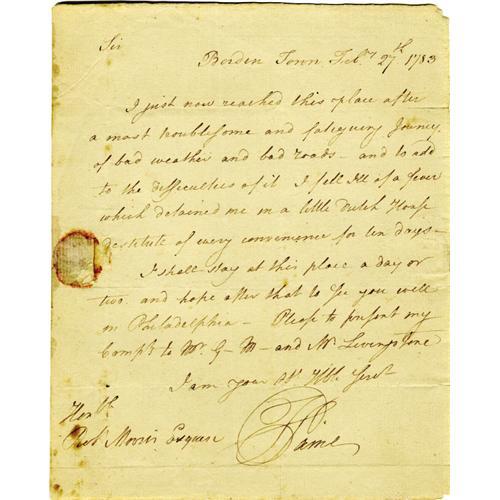 Sir
Borden Town Feb.y 27th 1783
I just now reached this place after
a most troublesome and fatiguing Journey
of bad weather and bad roads – and to add
to the difficulties of it I fell Ill of a fever
which detained me in a little Dutch House
destitute of every convenience for ten days –
I shall stay at this place a day or
two and hope after that to see you well
in Philadelphia – Please to present my
Compts to Mr. G– M– and Mr. Livingstone
I am your Obt Hble Servt
T Paine
Honble
Robt Morris Esquire